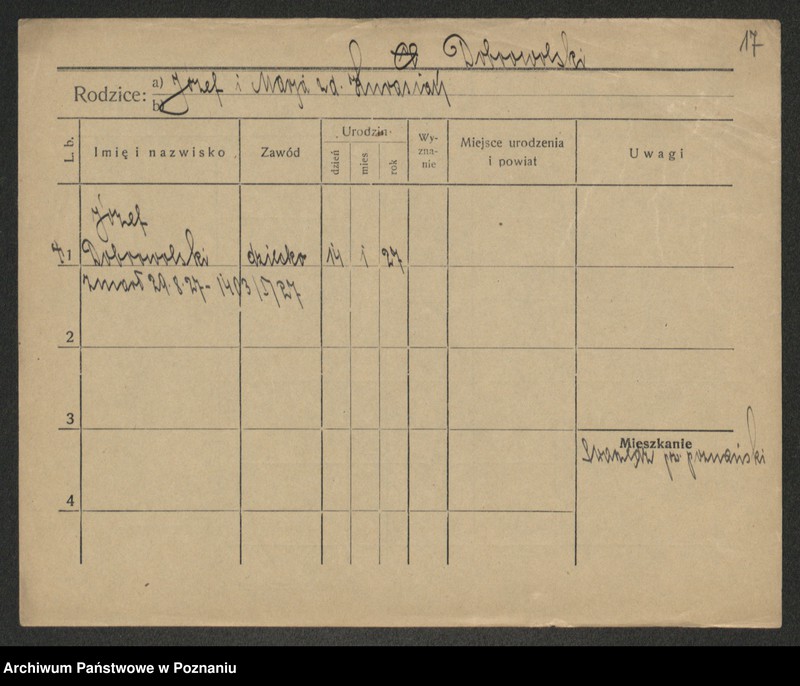 Dobrowolski 17
Rodzice: a) Józef i Marja zd.
b)
L. b. Imię i nazwisko Zawód Urodzin dzień mies. rok Wyznanie Miejsce urodzenia i powiat Uwagi
Józef
1 Dobrowolski dziecko 14 1 27
zmarł 29.8.27 -
2
3
Mieszkanie
poznański
4
Archiwum Państwowe w Poznaniu